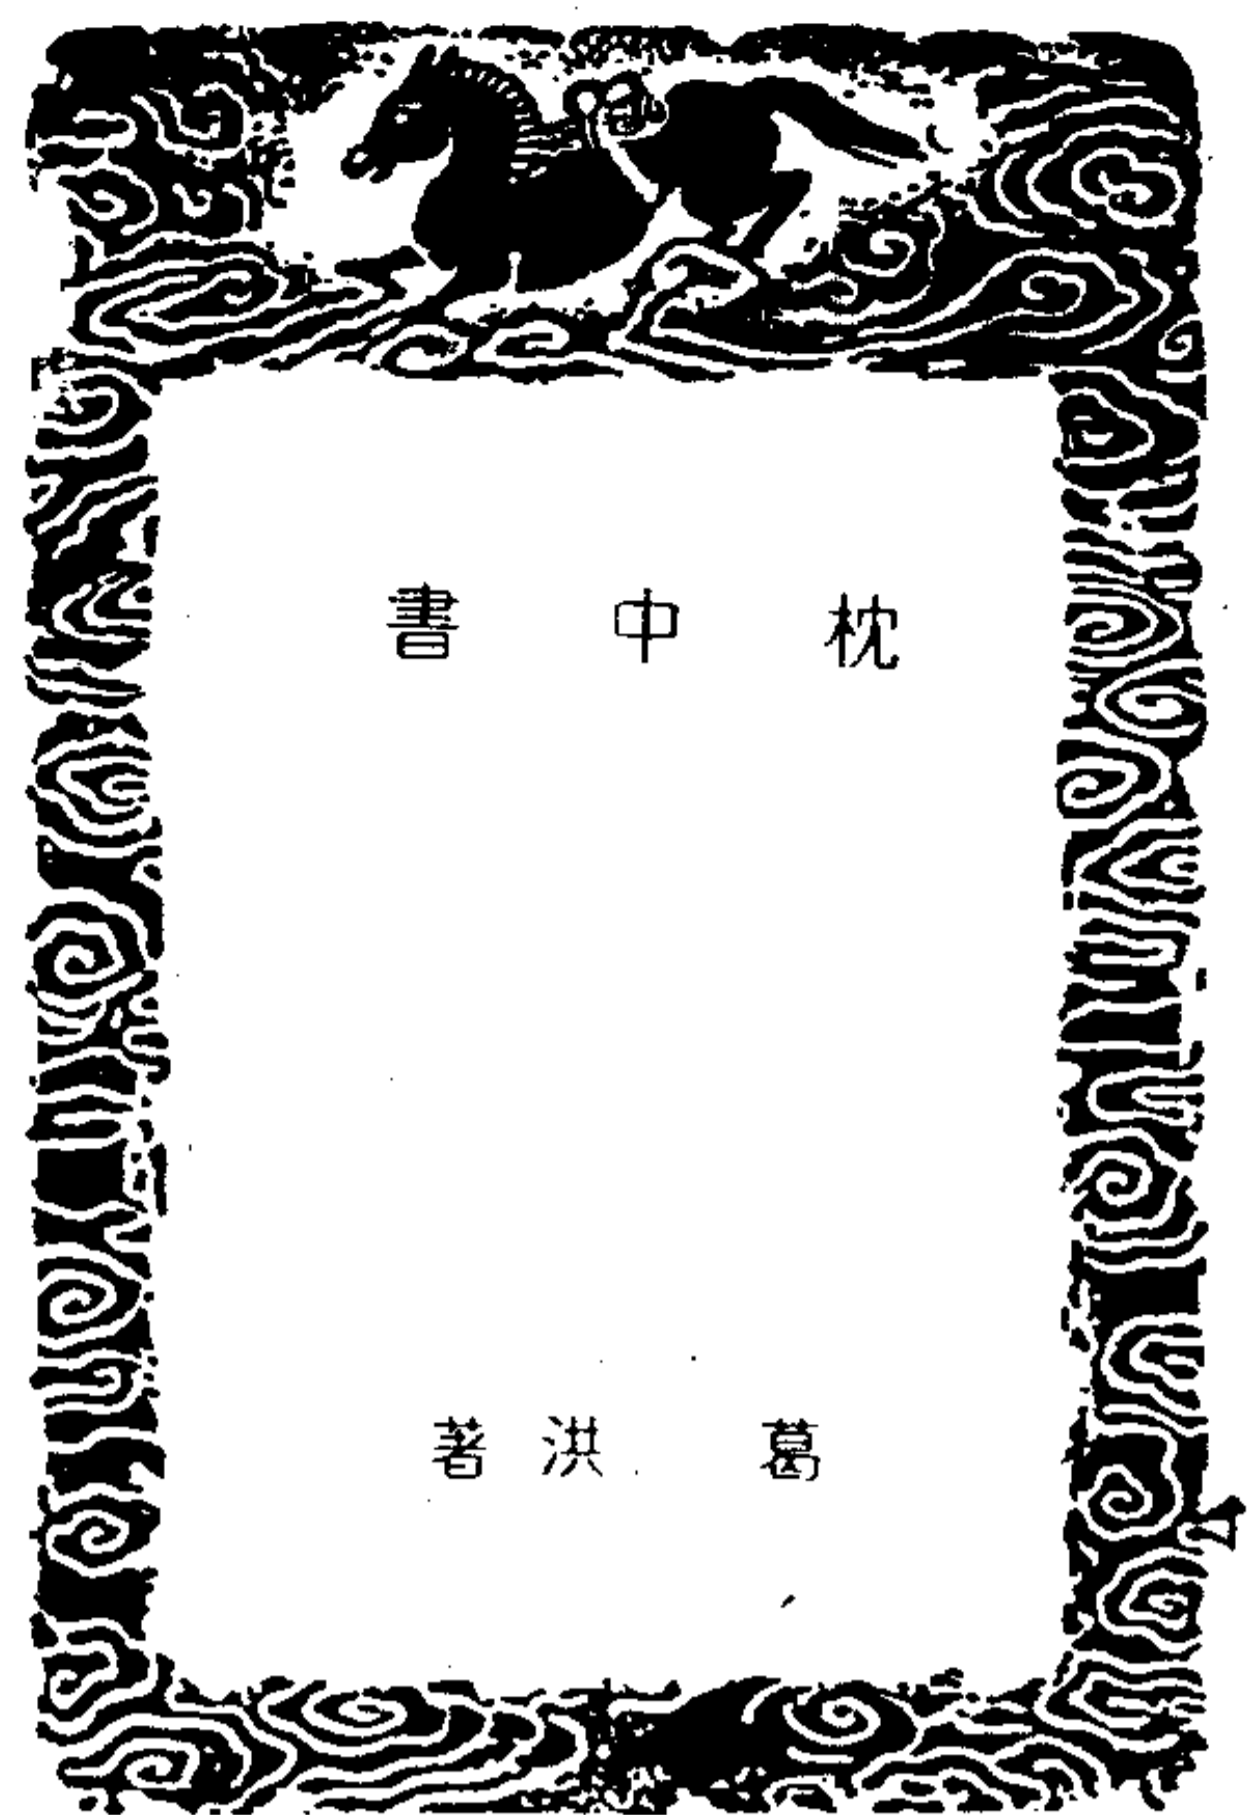 枕中書
葛洪著